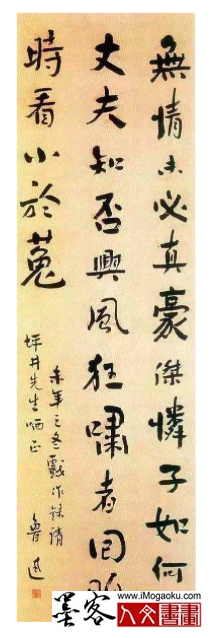 無情未必真豪傑憐子如何
丈夫知否興風狂嘯者回眸
時看小於菟
未年之冬戲作錄請
坪井先生哂正
魯迅
墨客
www.iMogaoku.com
人文書畫